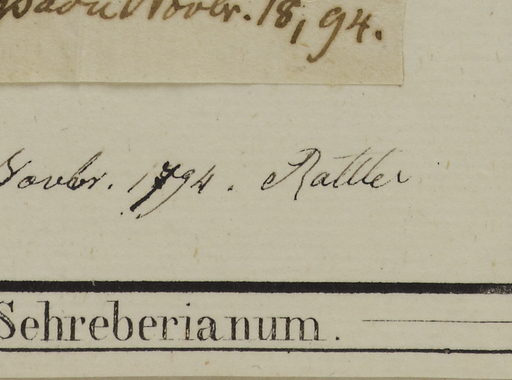 Novbr. 18, 94.
Novbr. 1794. Rottler
Schreberianum.